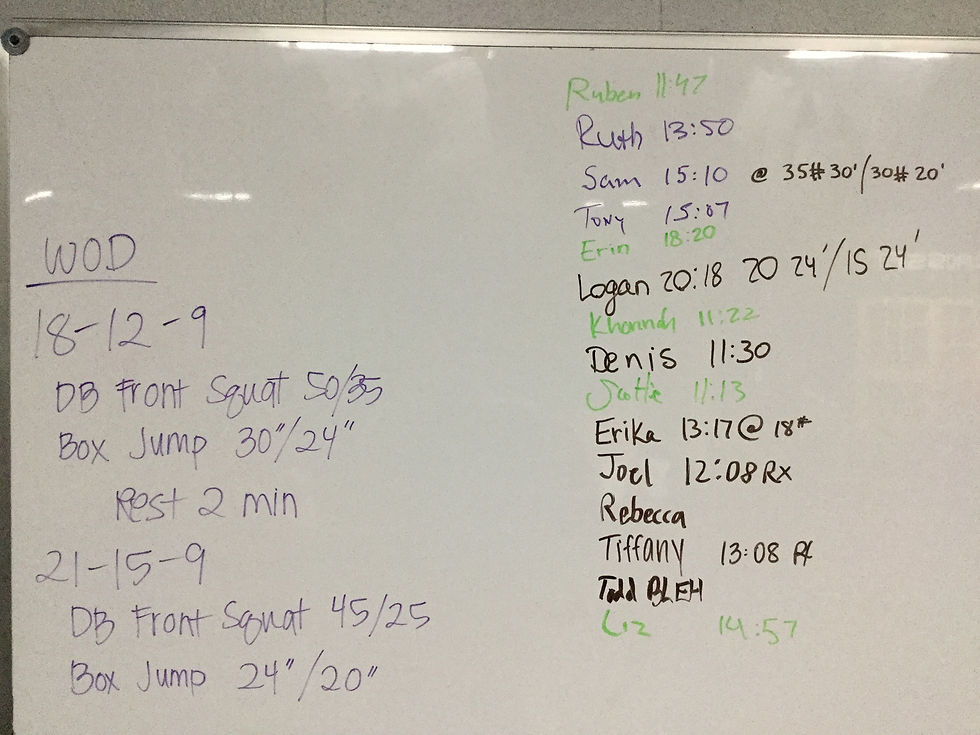 WOD
18-12-9
DB Front Squat 50/35
Box Jump 30"/24"
Rest 2 min
21-15-9
DB Front Squat 45/25
Box Jump 24"/20"
Ruben 11:47
Ruth 13:50
Sam 15:10 @ 35# 30'/30# 20'
Tony 15:07
Erin 18:20
Logan 20:18 20 24'/15 24'
11:22
Denis 11:30
Scottie 11:13
Erika 13:17 @ 18#
Joel 12:08 RX
Rebecca
Tiffany 13:08 RX
Todd BLEH
Liz 14:57